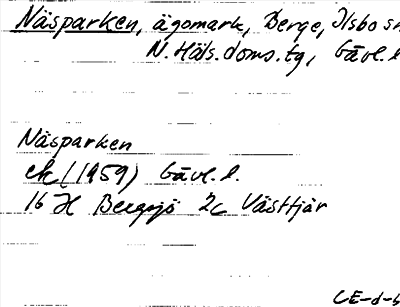 Näsparken, ägomark, Berge, Ilsbo sn
N. Häls. doms. tg, Gävl. l
Näsparken
ek (1959) Gävl. l.
16 H Bergsjö 2c Västtjär
CE-d-b